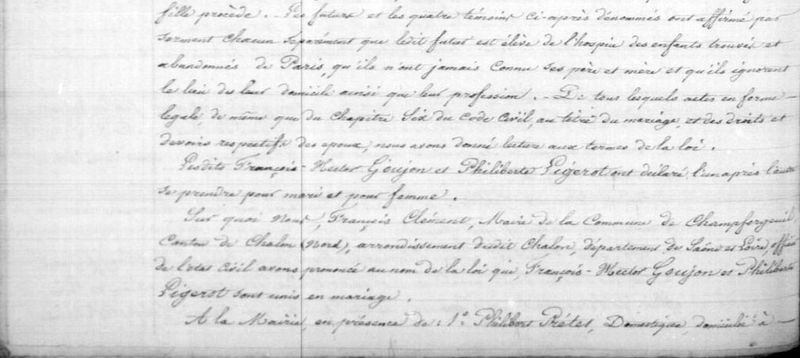 fille procède. Les futurs et les quatre témoins ci-après dénommés ont affirmé par
serment chacun séparément que ledit futur est élève de l'hospice des enfants trouvés et
abandonnés de Paris, qu'ils n'ont jamais connu ses père et mère et qu'ils ignorent
le lieu des leur domicile ainsi que leur profession. — De tous lesquels actes en forme
légale, de même que du chapitre Six du Code Civil, au titre du mariage, et des droits et
devoirs respectifs des époux, nous avons donné lecture aux termes de la loi.
Lesdits François-Hector Goujon et Philiberte Pigerot ont déclaré l'un après l'autre
se prendre pour mari et pour femme.
Sur quoi Nous, François Clément, Maire de la Commune de Champforgeuil,
Canton de Chalon (Nord), arrondissement dudit Chalon, département de Saône et Loire, officier
de l'état civil avons prononcé au nom de la loi que, François-Hector Goujon et Philiberte
Pigerot sont unis en mariage.
A la Mairie, en présence de: 1° Philibert Prétet, Domestique, domicilié à —